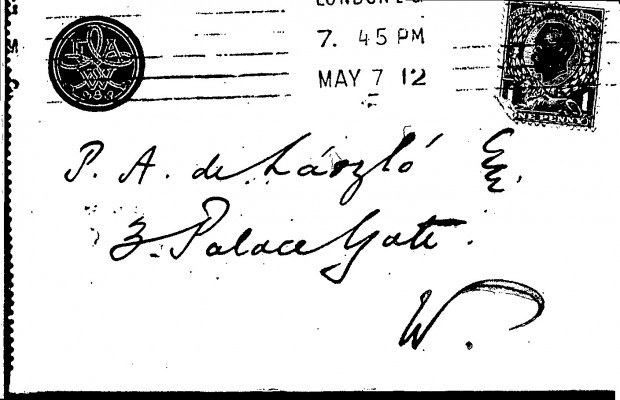 7. 45 PM
MAY 7 12
ONE PENNY
P. A. de László Esq.
3. Palace Gate.
W.